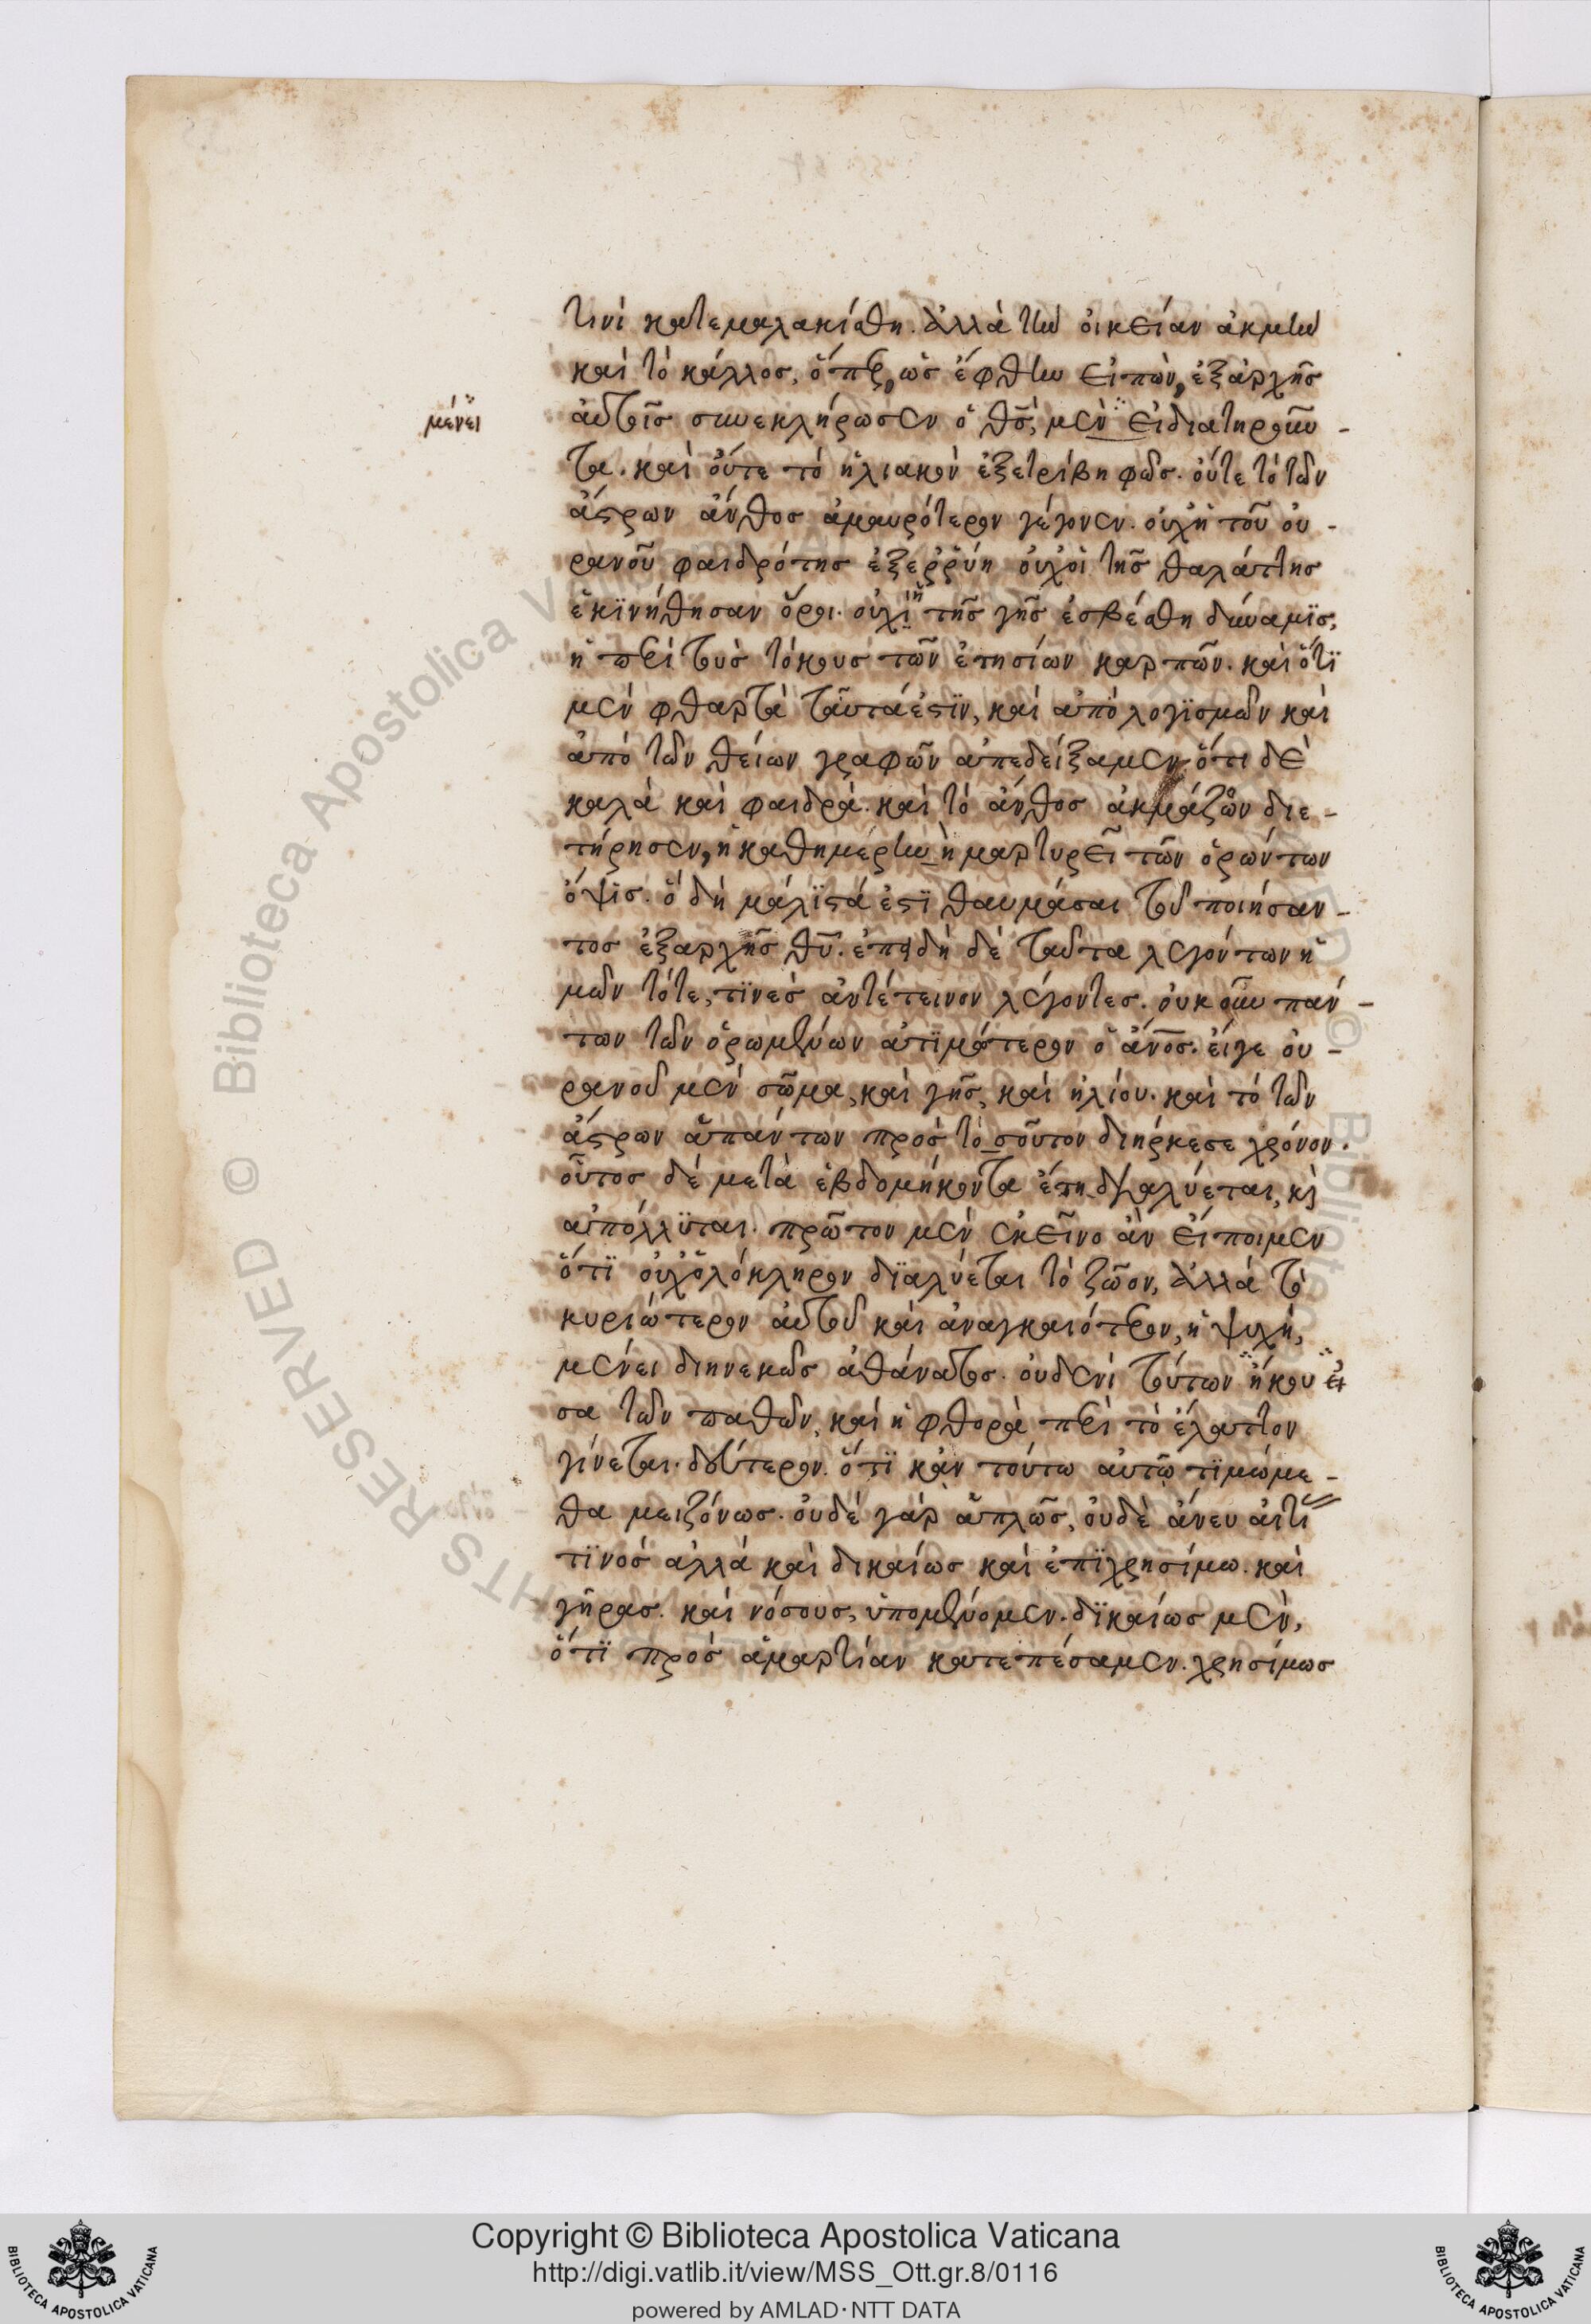 τινὶ κατεμαλακίσθη. ἀλλὰ τὴν οἰκείαν ἀκμὴν
καὶ τὸ κάλλος, ὅπερ, ὡς ἔφθην εἰπὼν, ἐξαρχῆς
μένει
αὐτοῖς συνεκλήρωσεν ὁ θς, μὲν εἰ διατηροῦν-
τα. καὶ οὔτε τὸ ἡλιακὸν ἐξετρίβη φῶς. οὔτε τὸ τῶν
ἄστρων ἄνθος ἀμαυρότερον γέγονεν. οὐχ ἡ τοῦ οὐ-
ρανοῦ φαιδρότης ἐξερρύη οὐχ οἱ τῆς θαλάττης
ἐκϊνήθησαν ὅροι. οὐχὶ ἡ τῆς γῆς ἐσβέσθη δύναμϊς,
ἡ περὶ τοὺς τόκους τῶν ἐτησίων καρπῶν. καὶ ὅτϊ
μὲν φθαρτὰ ταῦτά ἐστϊν, καὶ ἀπὸ λογϊσμῶν καὶ
ἀπὸ τῶν θείων γραφῶν ἀπεδείξαμεν ὅτι δὲ
καλὰ καὶ φαιδρὰ. καὶ τὸ ἄνθος ἀκμάζον διε-
τήρησεν, ἡ καθημέρην ἡ μαρτυρεῖ τῶν ὁρώντων
ὄψϊς. ὃ δὴ μάλϊστά ἐστϊ θαυμάσαι τοῦ ποιήσαν-
τος ἐξαρχῆς θῦ. ἐπειδὴ δὲ ταῦτα λεγόντων ἡ
μῶν τότε, τϊνὲς ἀντέτεινον λέγοντες. οὐκοῦν πάν-
των τῶν ὁρωμένων ἀτϊμότερον ὁ ἄνος. εἴγε οὐ-
ρανοῦ μὲν σῶμα, καὶ γῆς, καὶ ἡλίου. καὶ τὸ τῶν
ἄστρων ἁπάντων πρὸς τὸ σοῦτον διήρκεσε χρόνον.
οὗτος δὲ μετὰ ἑβδομήκοντα ἔτη διαλύεται, κὶ
ἀπόλλϋται. πρῶτον μὲν ἐκεῖνο ἂν εἴποιμεν
ὅτϊ οὐχ ὁλόκληρον δϊαλύεται τὸ ζῶον, ἀλλὰ τὸ
κυριώτερον αὐτοῦ καὶ ἀναγκαιότερον, ἡ ψυχὴ,
μένει διηνεκῶς ἀθάνατος. οὐδενὶ τούτων ἥκου
σα τῶν παθῶν, καὶ ἡ φθορὰ περὶ τὸ ἔλαττον
γίνεται. δεύτερον. ὅτϊ κἂν τούτω αὐτῷ τϊμώμε-
θα μειζόνως. οὐδὲ γὰρ ἁπλῶς, οὐδὲ ἄνευ αἰτί
τϊνός ἀλλὰ καὶ δικαίως καὶ ἐπϊχρησίμω. καὶ
γῆρας. καὶ νόσους, ὑπομένομεν. δϊκαίως μὲν,
ὅτϊ πρὸς ἁμαρτίαν κατεπέσαμεν. χρησίμως
Copyright © Biblioteca Apostolica Vaticana
http://digi.vatlib.it/view/MSS_Ott.gr.8/0116
powered by AMLAD·NTT DATA
BIBLIOTECA APOSTOLICA VATICANA
BIBLIOTECA APOSTOLICA VATICANA